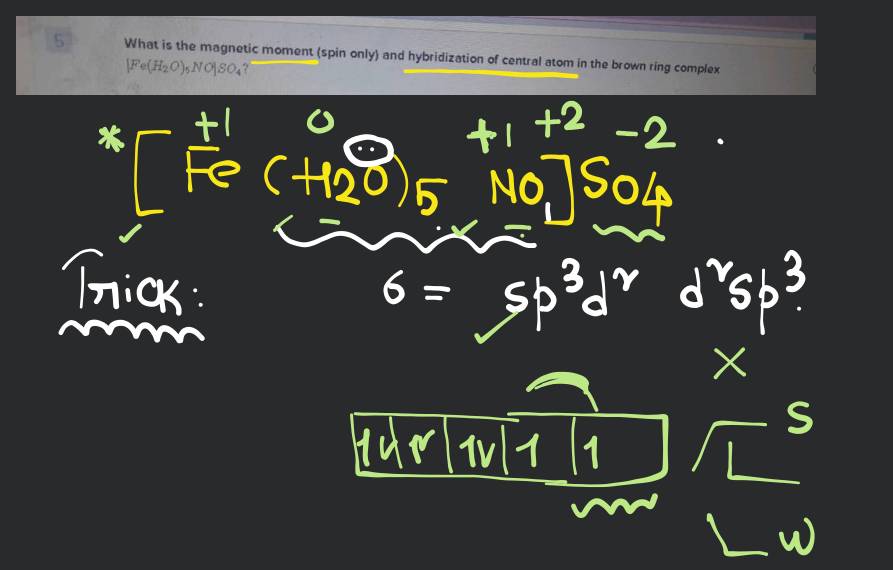 5
What is the magnetic moment (spin only) and hybridization of central atom in the brown ring complex
[Fe(H₂O)₅NO]SO₄?
+1 0 +1 +2 -2
* [Fe (H2O)5 NO]SO4
Trick: 6 = sp³d² d²sp³
×
S
1 1
L
W